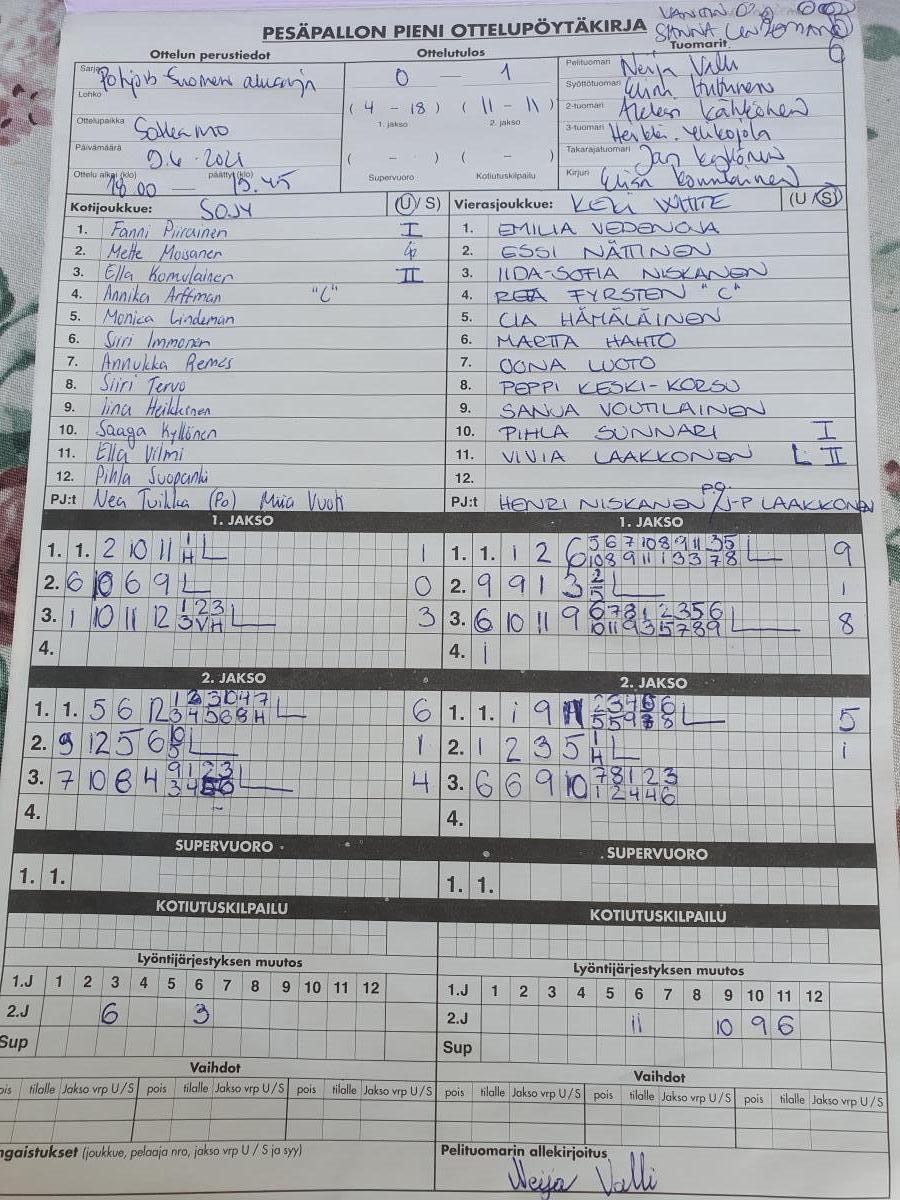 PESÄPALLON PIENI OTTELUPÖYTÄKIRJA
SANNA
Ottelun perustiedot
Ottelutulos
Tuomarit
Sarja Pohjois-Suomen aluesarja
Lohko
Ottelupaikka Sotkamo
Päivämäärä 9.6.2021
Ottelu alkoi (klo) 18.00 — päättyi (klo) 19.45
0 — 1
( 4 - 18 ) ( 11 - 11 )
1. jakso 2. jakso
( - ) ( - )
Supervuoro Kotiutuskilpailu
Pelituomari Neija Valli
Syöttötuomari
2-tuomari
3-tuomari
Takarajatuomari
Kirjuri Elisa Komulainen
Kotijoukkue: SOJY (U/S)
1. Fanni Piirainen I
2. Mette Moisanen
3. Ella Komulainen II
4. Annika Arffman "C"
5. Monica Lindeman
6. Siiri Immonen
7. Annukka Remes
8. Siiri Tervo
9. Iina Heikkinen
10. Saaga Kyllönen
11. Ella Vilmi
12. Pihla Suopanki
PJ:t Nea Tuikka (Po) Miia Vuoti
Vierasjoukkue: KEKI WHITE (U/S)
1. EMILIA VEDENOJA
2. ESSI NÄTTINEN
3. IIDA-SOFIA NISKANEN
4. REA FYRSTEN "C"
5. CIA HÄMÄLÄINEN
6. MARTTA HAHTO
7. OONA LUOTO
8. PEPPI KESKI-KORSU
9. SANJA VOUTILAINEN
10. PIHLA SUNNARI I
11. VIVIA LAAKKONEN L II
12.
PJ:t HENRI NISKANEN J-P LAAKKONEN
1. JAKSO
1. 1. 2 10 11 1 H 1
2. 6 10 6 9 0
3. 1 10 11 12 1 2 3 3 V H 3
4.
1. JAKSO
1. 1. 1 2 6 5 6 7 10 8 9 11 3 5 9
10 8 9 11 1 3 3 7 8
2. 9 9 1 3 2 5 1
3. 6 10 11 9 6 7 8 1 2 3 5 6 8
10 11 9 3 5 7 8 9
4. 1
2. JAKSO
1. 1. 5 6 12 6
3 4 5 6 8 H
2. 9 12 5 6 10 5 1
3. 7 10 8 4 9 1 2 3 4
4.
2. JAKSO
1. 1. 1 9 11 5
2. 1 2 3 5 1 H 1
3. 6 6 9 10 7 8 1 2 3
1 2 4 4 6
4.
SUPERVUORO
1. 1.
SUPERVUORO
1. 1.
KOTIUTUSKILPAILU
KOTIUTUSKILPAILU
Lyöntijärjestyksen muutos
1.J 1 2 3 4 5 6 7 8 9 10 11 12
2.J 6 3
Sup
Lyöntijärjestyksen muutos
1.J 1 2 3 4 5 6 7 8 9 10 11 12
2.J 11 10 9 6
Sup
Vaihdot
ois tilalle Jakso vrp U/S pois tilalle Jakso vrp U/S pois tilalle Jakso vrp U/S
Vaihdot
pois tilalle Jakso vrp U/S pois tilalle Jakso vrp U/S pois tilalle Jakso vrp U/S
ngaistukset (joukkue, pelaaja nro, jakso vrp U / S ja syy)
Pelituomarin allekirjoitus
Neija Valli